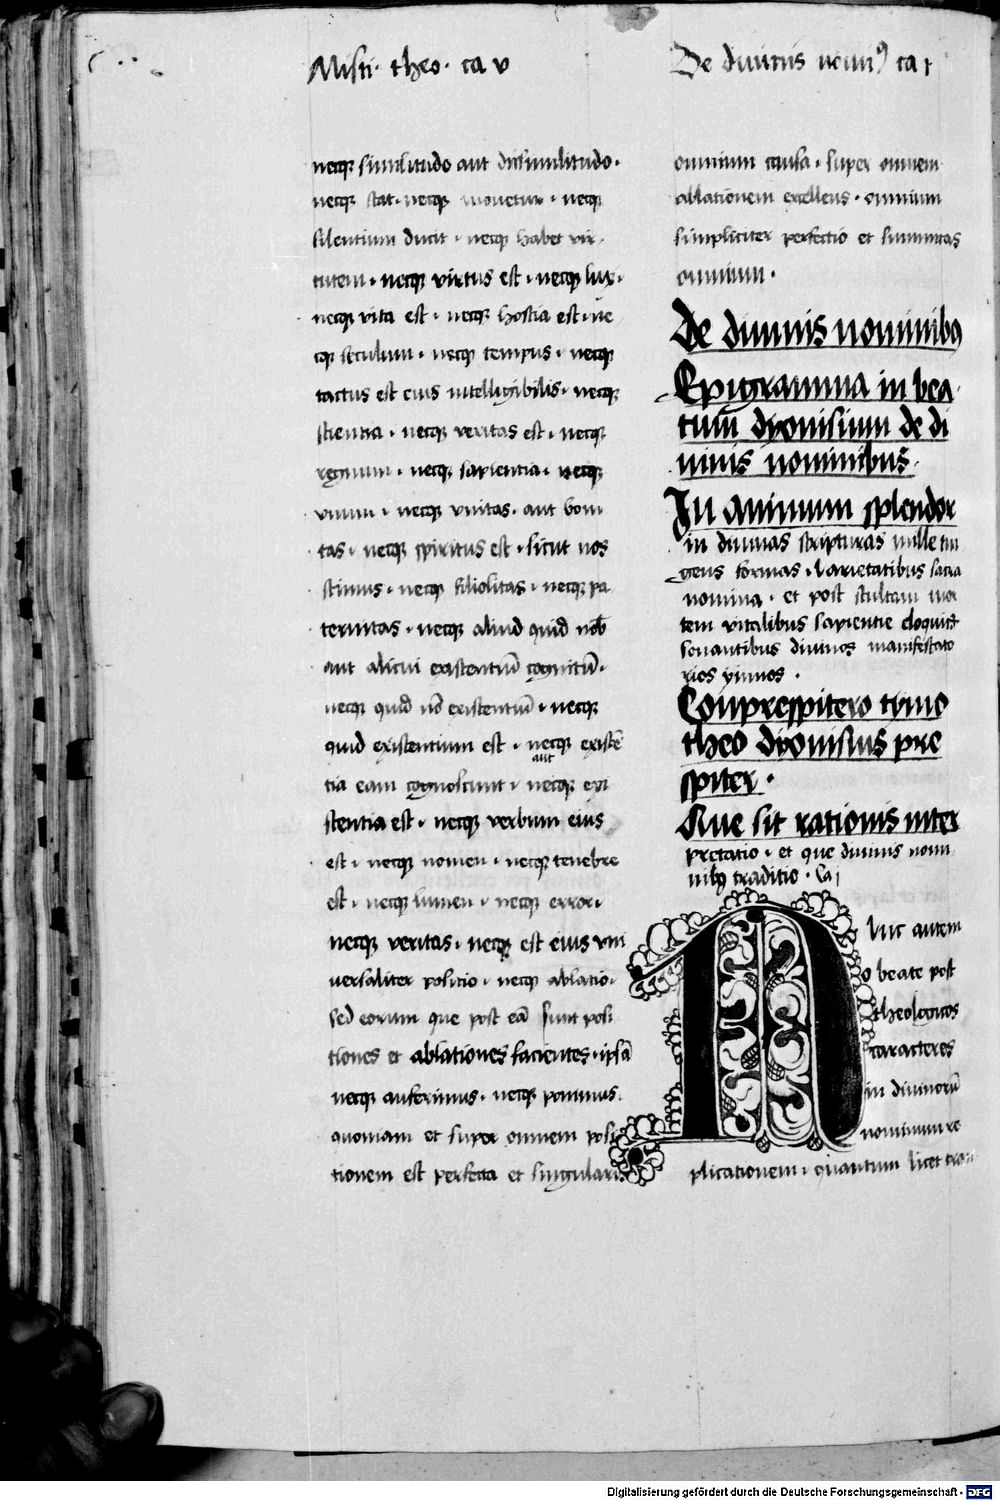 Misti· theo· ca v
neqꝫ similitudo aut dissimilitudo·
neqꝫ stat· neqꝫ mouetur · neqꝫ
silentium ducit · neqꝫ habet vir
tutem · neqꝫ virtus est · neqꝫ lux·
neqꝫ vita est · neqꝫ hostia est · ne
qꝫ seculum · neqꝫ tempus · neqꝫ
tactus est eius intelligibilis· neqꝫ
scientia · neqꝫ veritas est · neqꝫ
regnum · neqꝫ sapientia· neqꝫ
vnum · neqꝫ vnitas· aut boni
tas · neqꝫ spiritus est · sicut nos
scimus · neqꝫ filiolitas · neqꝫ pa
ternitas · neqꝫ aliud quid nob̄
aut alicui existentiū cognitū·
neqꝫ quid nō existentiū · neqꝫ
quid existentium est · neqꝫ existē
aut
tia eam cognoscunt · neqꝫ exi
stentia est · neqꝫ verbum eius
est · neqꝫ nomen · neqꝫ tenebre
est · neqꝫ lumen · neqꝫ error·
neqꝫ veritas· neqꝫ est eius vni
uersaliter positio · neqꝫ ablatio·
sed eorum que post eā sunt posi
tiones et ablationes facientes·ipsā
neqꝫ auferimus· neqꝫ ponimus·
quoniam et super omnem posi
tionem est perfecta et singularis
De diuinis noīmꝰ ca 1
omnium causa · super omnem
ablationem excellens · omnium
simpliciter perfectio et summitas
omnium ·
De diuinis nominibꝰ
Epigramma in bea
tum dyonisium de di
uinis nominibus·
In animum splendor
in diuinas scripturas mille tin
gens formas · varietatibus sacra
nomina · et post scultam mor
tem vitalibus sapientie eloquiis
sonantibus diuinos manifestato
rios ymnos ·
Conprespitero tymo
theo dyonisius pre
spiter ·
Que sit rationis inter
pretatio · et que diuinis nomi
nibꝰ traditio · Ca 1
Nunc autem
o beate post
theologicos
caracteres
in diuinorū
nominum re
plicationem · quantum licet tran
Digitalisierung gefördert durch die Deutsche Forschungsgemeinschaft - DFG